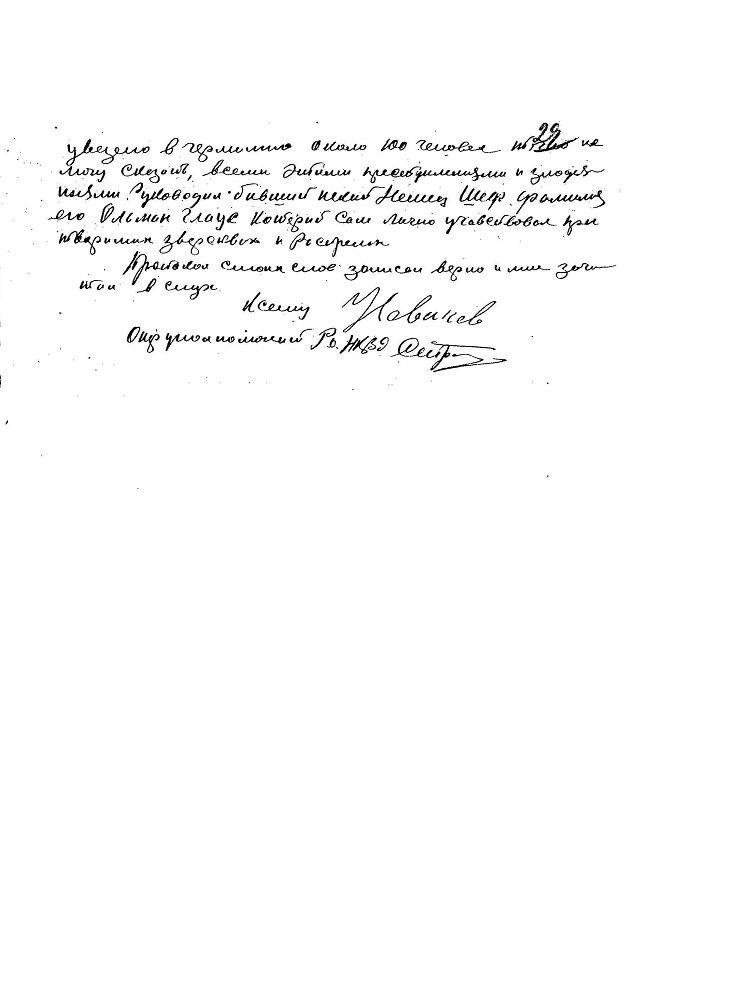 29
увезено в германию около 100 человек точно не
могу сказать, всеми этими преступлениями и злодея
ниями Руководил бывший некий Немец Шеф фамилия
его Ольман Глаус Который Сам лично учавствовал при
творимых зверствах и Расстрелах
Протокол с моих слов записан верно и мне зачи
тан в слух
К сему Новиков
Опер уполномоченый Ро. НКВД